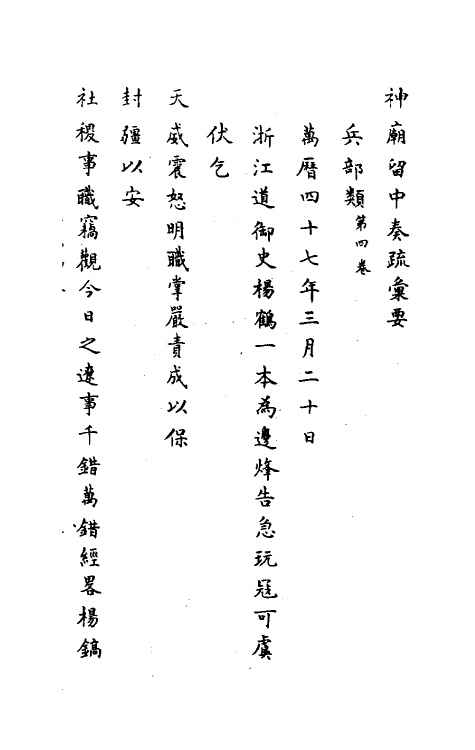 神廟留中奏疏彙要
兵部類第四卷
萬曆四十七年三月二十日
浙江道御史楊鶴一本為邊烽告急玩冦可虞
伏乞
天威震怒明職掌嚴責成以保
封疆以安
社稷事職竊觀今日之遼事千錯萬錯經畧楊鎬